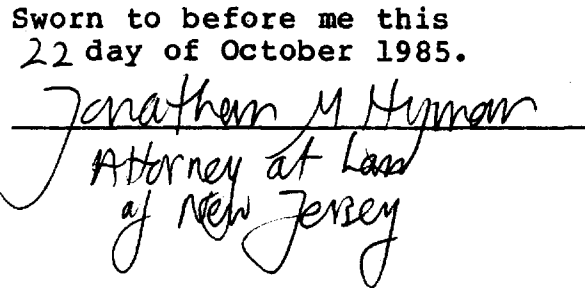 Sworn to before me this
22 day of October 1985.
Jonathan M Hyman
Attorney at Law
of New Jersey